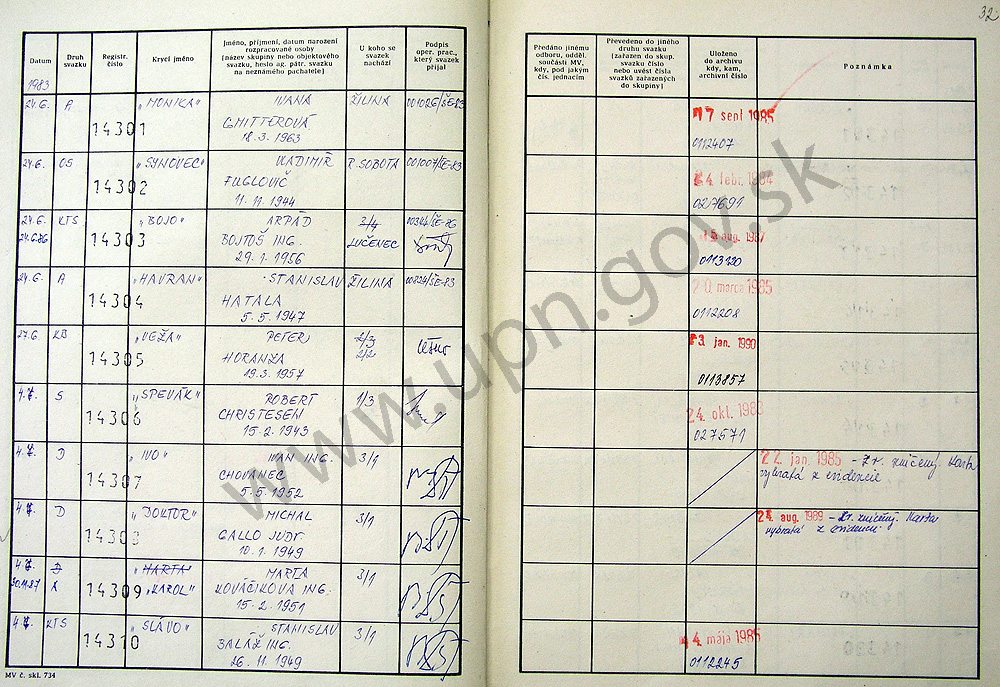 32
Datum
Druh svazku
Registr. číslo
Krycí jméno
Jméno, příjmení, datum narození
rozpracované osoby
(název skupiny nebo objektového
svazku, heslo ag. pátr. svazku
na neznámého pachatele)
U koho se
svazek
nachází
Podpis
oper. prac.,
který svazek
přijal
Předáno jinému
odboru, odděl.
součásti MV,
kdy, pod jakým
čís. jednacím
Převedeno do jiného
druhu svazku
(zařazen do skup.
svazku číslo
nebo uvést čísla
svazků zařazených
do skupiny)
Uloženo
do archivu
kdy, kam,
archivní číslo
Poznámka
1983
24.6. A „MONIKA" IVANA ŽILINA 001026/ŠE-83
14301 GMITTEROVÁ
18.3.1963
17 sent 1985
0112407
24.6. OS „SYNOVEC" VLADIMÍR R. SOBOTA 001007/ŠE-83
14302 FUGLOVIČ
11.11.1944
027691
24.6. KTS „BOJO" ARPÁD 3/4
24.6.86 14303 BOJTOŠ ING. LUČENEC
29.1.1956
aug. 1987
0113320
24.6. A „HAVRAN" STANISLAV ŽILINA
14304 HATALA
5.5.1947
marca 1985
0112208
27.6. KB „VEŽA" PETER 2/3
14305 HORANZA 2/2
19.3.1957
3. jan. 1990
0113857
4.7. S „SPEVÁK" ROBERT 1/3
14306 CHRISTESEN
15.2.1943
24. okt. 1983
027571
4.7. D „IVO" IVAN ING. 3/1
14307 CHOVANEC
5.5.1952
22. jan. 1985 - Zv. zničený karta
vybratá z evidencie
4.7. D „DOKTOR" MICHAL 3/1
14308 GALLO JUDR.
10.1.1949
aug. 1989 - Zv. zničený. Karta
vybratá z evidencie
4.7. D „MARTA" MARTA 3/1
30.11.87 A 14309 „KAROL" KOVÁČIKOVA ING.
15.2.1951
4.7. KTS „SLÁVO" STANISLAV 3/1
14310 BALÁŽ ING.
26.11.1949
4. mája 1985
0112245
MV č. skl. 734
www.upn.gov.sk